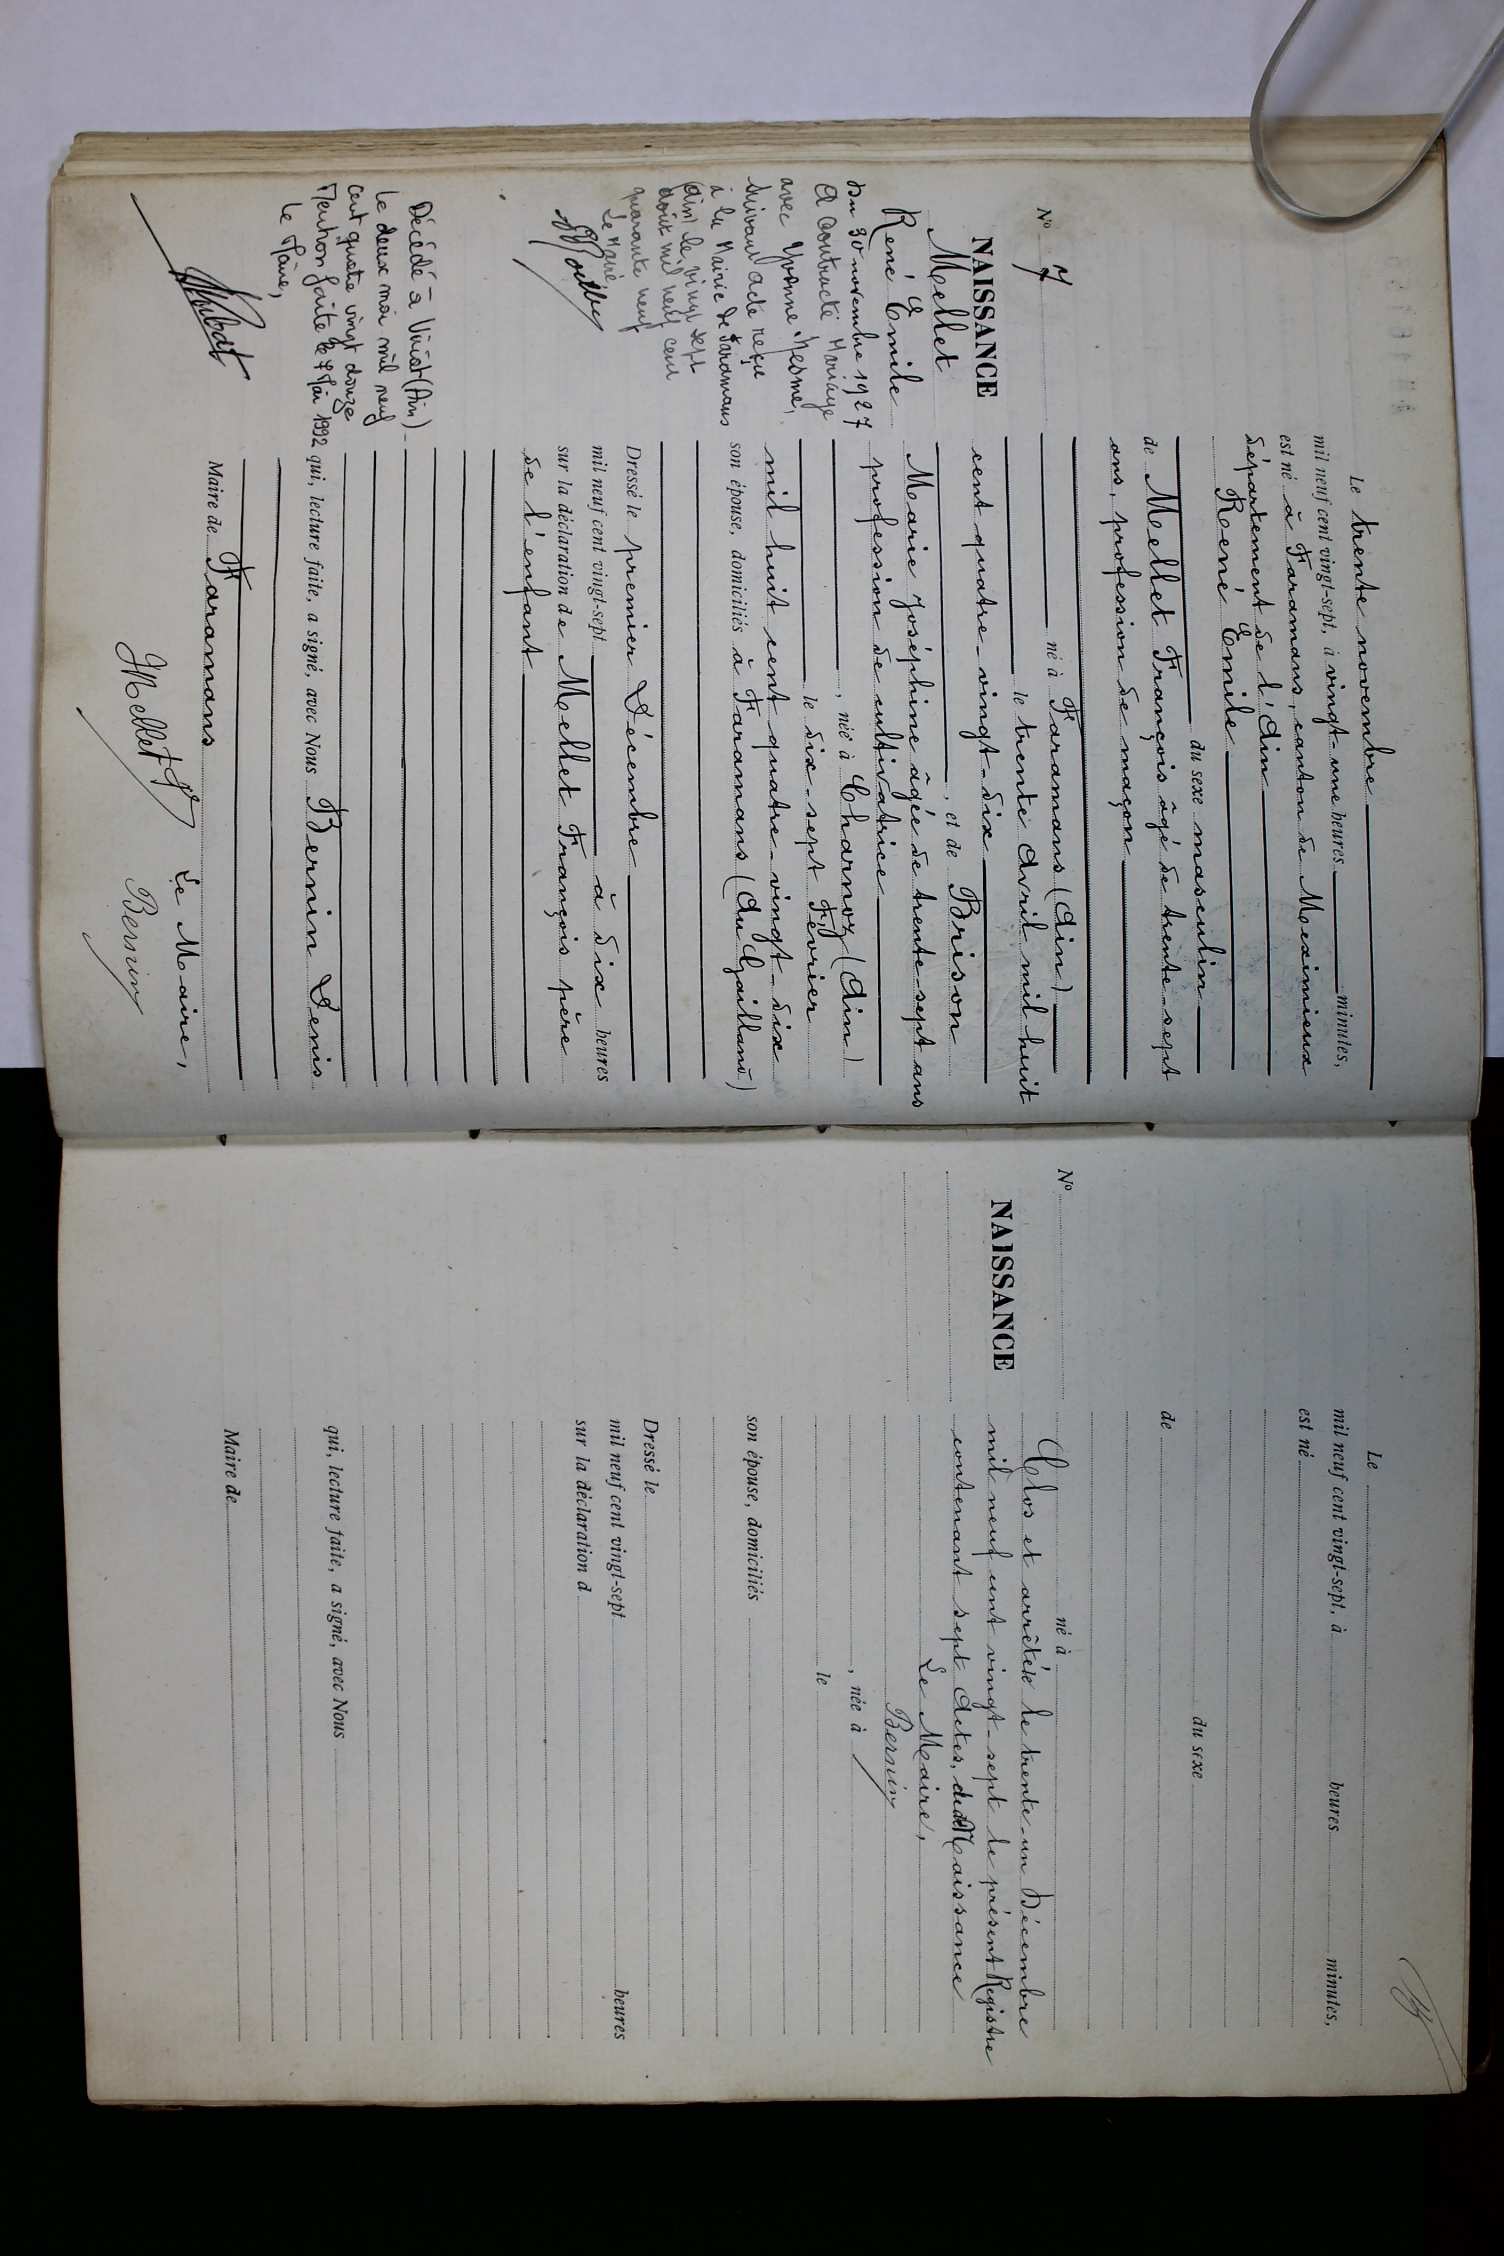 N° 7
NAISSANCE
Mellet
René Emile
Du 30 novembre 1927
a contracté Mariage
avec Yvonne
suivant acte reçu
à la Mairie de Faramans
(Ain) le vingt sept
août mil neuf cent
quarante neuf
Le Maire
Décédé à Viriat (Ain)
le deux mai mil neuf
cent quatre vingt douze
Mention faite le 7 Mai 1992
Le Maire,
Le trente novembre
mil neuf cent vingt-sept, à vingt-une heures minutes,
est né à Faramans, canton de Meximieux
département de l'Ain
René Emile
du sexe masculin
de Mellet François âgé de trente-sept
ans, profession de maçon
né à Faramans (Ain)
le trente Avril mil huit
cent quatre-vingt-dix
, et de Brison
Marie Joséphine âgée de trente-sept ans
profession de cultivatrice
, née à Charnoz (Ain)
le dix-sept Février
mil huit cent quatre-vingt-dix
son épouse, domiciliés à Faramans (Au Gailland)
Dressé le premier Décembre
mil neuf cent vingt-sept à dix heures
sur la déclaration de Mellet François père
de l'enfant
qui, lecture faite, a signé, avec Nous Bernin Denis
Maire de Faramans
Le Maire,
Mellet F
Bernin
N°
NAISSANCE
Le
mil neuf cent vingt-sept, à heures minutes,
est né
du sexe
de
né à
Clos et arrêté le trente-un Décembre
mil neuf cent vingt-sept le présent Registre
contenant sept Actes, de Naissance
Le Maire,
Bernin
, née à
le
son épouse, domiciliés
Dressé le
mil neuf cent vingt-sept heures
sur la déclaration d
qui, lecture faite, a signé, avec Nous
Maire de